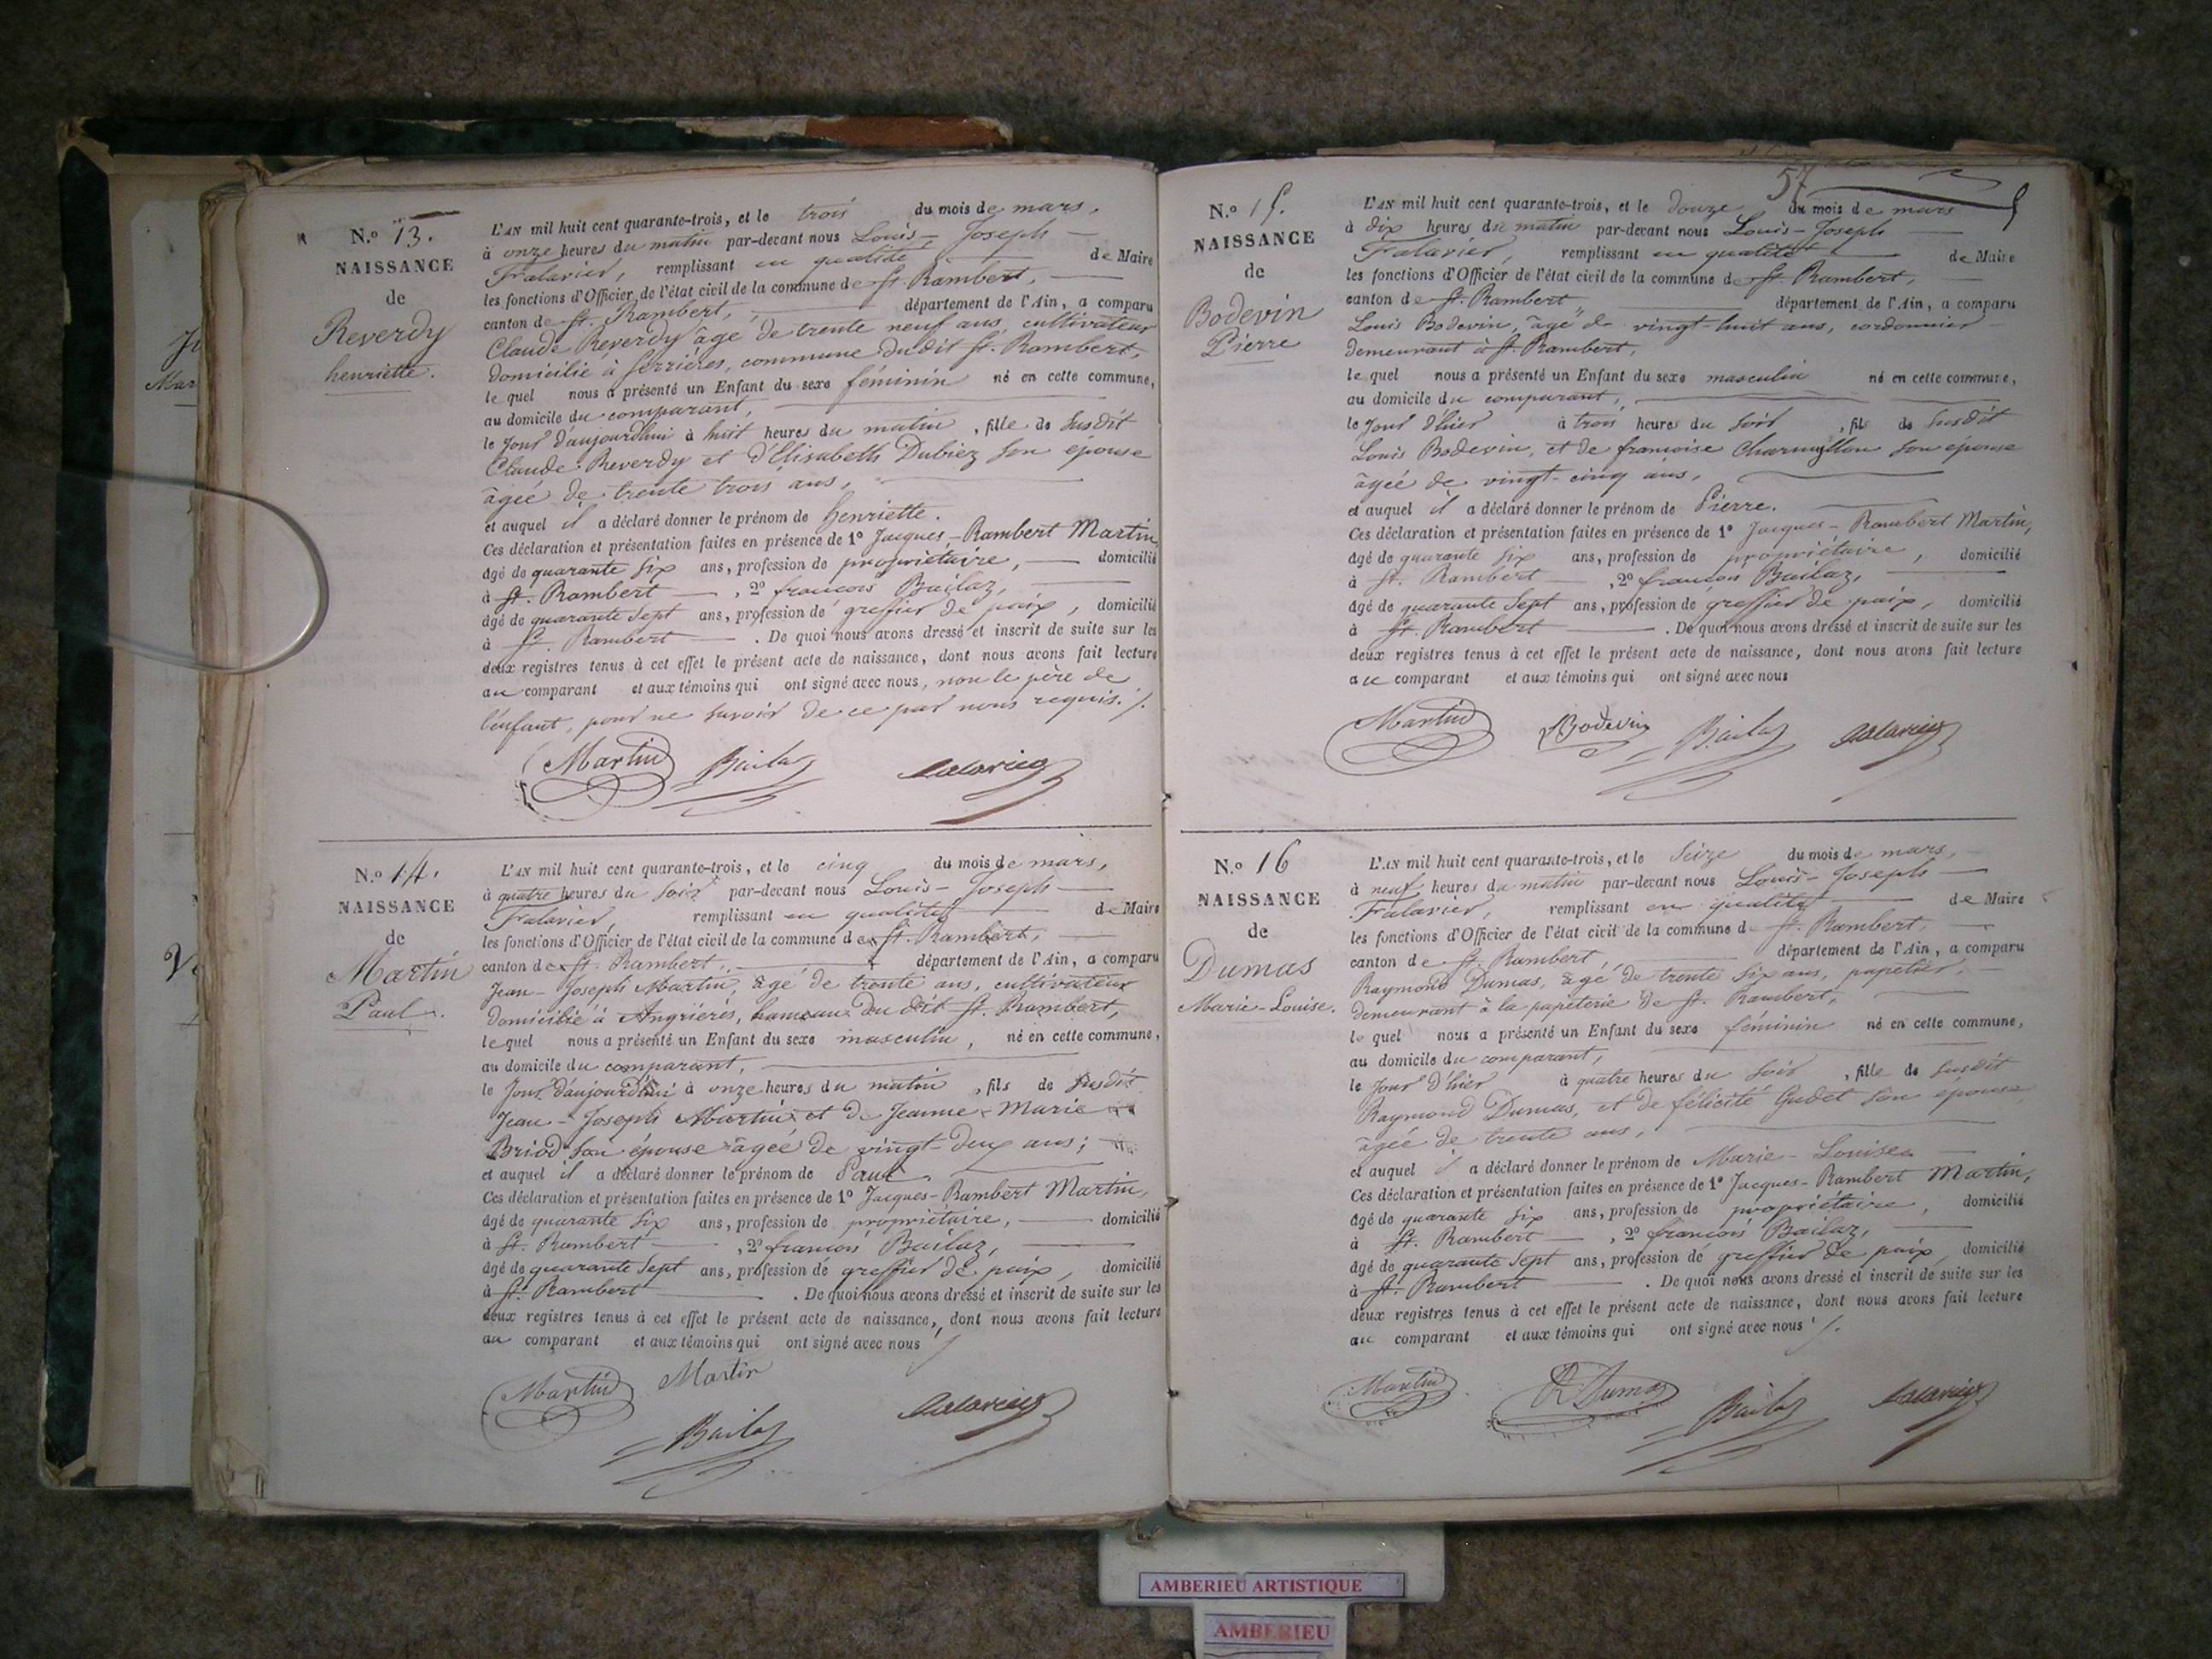 N.o 13.
NAISSANCE
de
Reverdy
henriette.
L'AN mil huit cent quarante-trois, et le trois du mois de mars,
à onze heures du matin par-devant nous Louis-Joseph
Falavier, remplissant en qualité de Maire
les fonctions d'Officier de l'état civil de la commune de St. Rambert,
canton de St. Rambert, département de l'Ain, a comparu
Claude Reverdy âgé de trente neuf ans, cultivateur
domicilié à Serrières, commune dudit St. Rambert,
le quel nous a présenté un Enfant du sexe féminin né en cette commune,
au domicile du comparant,
le jour d'aujourd'hui à huit heures du matin, fille de susdit
Claude Reverdy et d'Elisabeth Dubiez son épouse
âgée de trente trois ans,
et auquel il a déclaré donner le prénom de henriette.
Ces déclaration et présentation faites en présence de 1o Jacques-Rambert Martin,
âgé de quarante six ans, profession de propriétaire, domicilié
à St. Rambert, 2o françois Bailaz,
âgé de quarante sept ans, profession de greffier de paix, domicilié
à St. Rambert. De quoi nous avons dressé et inscrit de suite sur les
deux registres tenus à cet effet le présent acte de naissance, dont nous avons fait lecture
au comparant et aux témoins qui ont signé avec nous, non le père de
l'enfant, pour ne savoir de ce par nous requis./.
Martin Bailaz Falavier
N.o 14.
NAISSANCE
de
Martin
Paul.
L'AN mil huit cent quarante-trois, et le cinq du mois de mars,
à quatre heures du soir par-devant nous Louis-Joseph
Falavier, remplissant en qualité de Maire
les fonctions d'Officier de l'état civil de la commune de St. Rambert,
canton de St. Rambert, département de l'Ain, a comparu
Jean-Joseph Martin, âgé de trente ans, cultivateur
domicilié à Angrières, hameau du dit St. Rambert,
le quel nous a présenté un Enfant du sexe masculin, né en cette commune,
au domicile du comparant,
le jour d'aujourd'hui à onze heures du matin, fils de susdit
Jean-Joseph Martin et de Jeanne Marie
Briod son épouse âgée de vingt-deux ans;
et auquel il a déclaré donner le prénom de Paul.
Ces déclaration et présentation faites en présence de 1o Jacques-Rambert Martin,
âgé de quarante six ans, profession de propriétaire, domicilié
à St. Rambert, 2o françois Bailaz,
âgé de quarante sept ans, profession de greffier de paix, domicilié
à St. Rambert. De quoi nous avons dressé et inscrit de suite sur les
deux registres tenus à cet effet le présent acte de naissance, dont nous avons fait lecture
au comparant et aux témoins qui ont signé avec nous
Martin Martin Bailaz Falavier
57
N.o 15.
NAISSANCE
de
Bodevin
Pierre
L'AN mil huit cent quarante-trois, et le douze du mois de mars
à dix heures du matin par-devant nous Louis-Joseph
Falavier, remplissant en qualité de Maire
les fonctions d'Officier de l'état civil de la commune de St. Rambert,
canton de St. Rambert département de l'Ain, a comparu
Louis Bodevin, âgé de vingt-huit ans, cordonnier
demeurant à St. Rambert,
le quel nous a présenté un Enfant du sexe masculin né en cette commune,
au domicile du comparant,
le jour d'hier à trois heures du soir, fils de susdit
Louis Bodevin, et de françoise Charmillon son épouse
âgée de vingt-cinq ans,
et auquel il a déclaré donner le prénom de Pierre.
Ces déclaration et présentation faites en présence de 1o Jacques-Rambert Martin,
âgé de quarante six ans, profession de propriétaire, domicilié
à St. Rambert, 2o françois Bailaz,
âgé de quarante sept ans, profession de greffier de paix, domicilié
à St. Rambert. De quoi nous avons dressé et inscrit de suite sur les
deux registres tenus à cet effet le présent acte de naissance, dont nous avons fait lecture
au comparant et aux témoins qui ont signé avec nous
Martin Bodevin Bailaz Falavier
N.o 16
NAISSANCE
de
Dumas
Marie-Louise.
L'AN mil huit cent quarante-trois, et le seize du mois de mars,
à neuf heures du matin par-devant nous Louis-Joseph
Falavier, remplissant en qualité de Maire
les fonctions d'Officier de l'état civil de la commune d St. Rambert,
canton de St. Rambert, département de l'Ain, a comparu
Raymond Dumas, âgé de trente six ans, papetier,
demeurant à la papeterie de St. Rambert,
le quel nous a présenté un Enfant du sexe féminin né en cette commune,
au domicile du comparant,
le jour d'hier à quatre heures du soir, fille de susdit
Raymond Dumas, et de félicité Gudet son épouse
âgée de trente ans,
et auquel il a déclaré donner le prénom de Marie-Louise
Ces déclaration et présentation faites en présence de 1o Jacques-Rambert Martin,
âgé de quarante six ans, profession de propriétaire, domicilié
à St. Rambert, 2o françois Bailaz,
âgé de quarante sept ans, profession de greffier de paix, domicilié
à St. Rambert. De quoi nous avons dressé et inscrit de suite sur les
deux registres tenus à cet effet le présent acte de naissance, dont nous avons fait lecture
au comparant et aux témoins qui ont signé avec nous /.
Martin R. Dumas Bailaz Falavier
AMBERIEU ARTISTIQUE
AMBERIEU